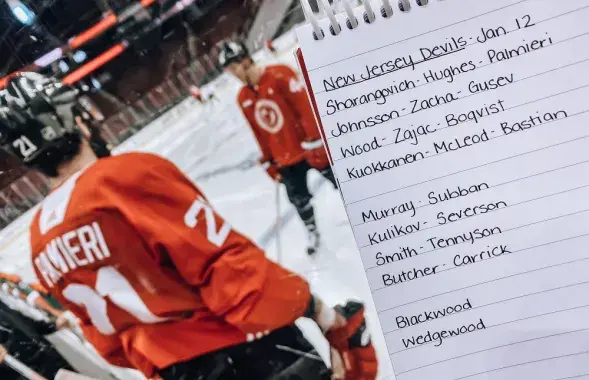 21
PALMIERI
21
2
New Jersey Devils - Jan. 12
Sharangovich - Hughes - Palmieri
Johnsson - Zacha - Gusev
Wood - Zajac - Boqvist
Kuokkanen - McLeod - Bastian
Murray - Subban
Kulikov - Severson
Smith - Tennyson
Butcher - Carrick
Blackwood
Wedgewood